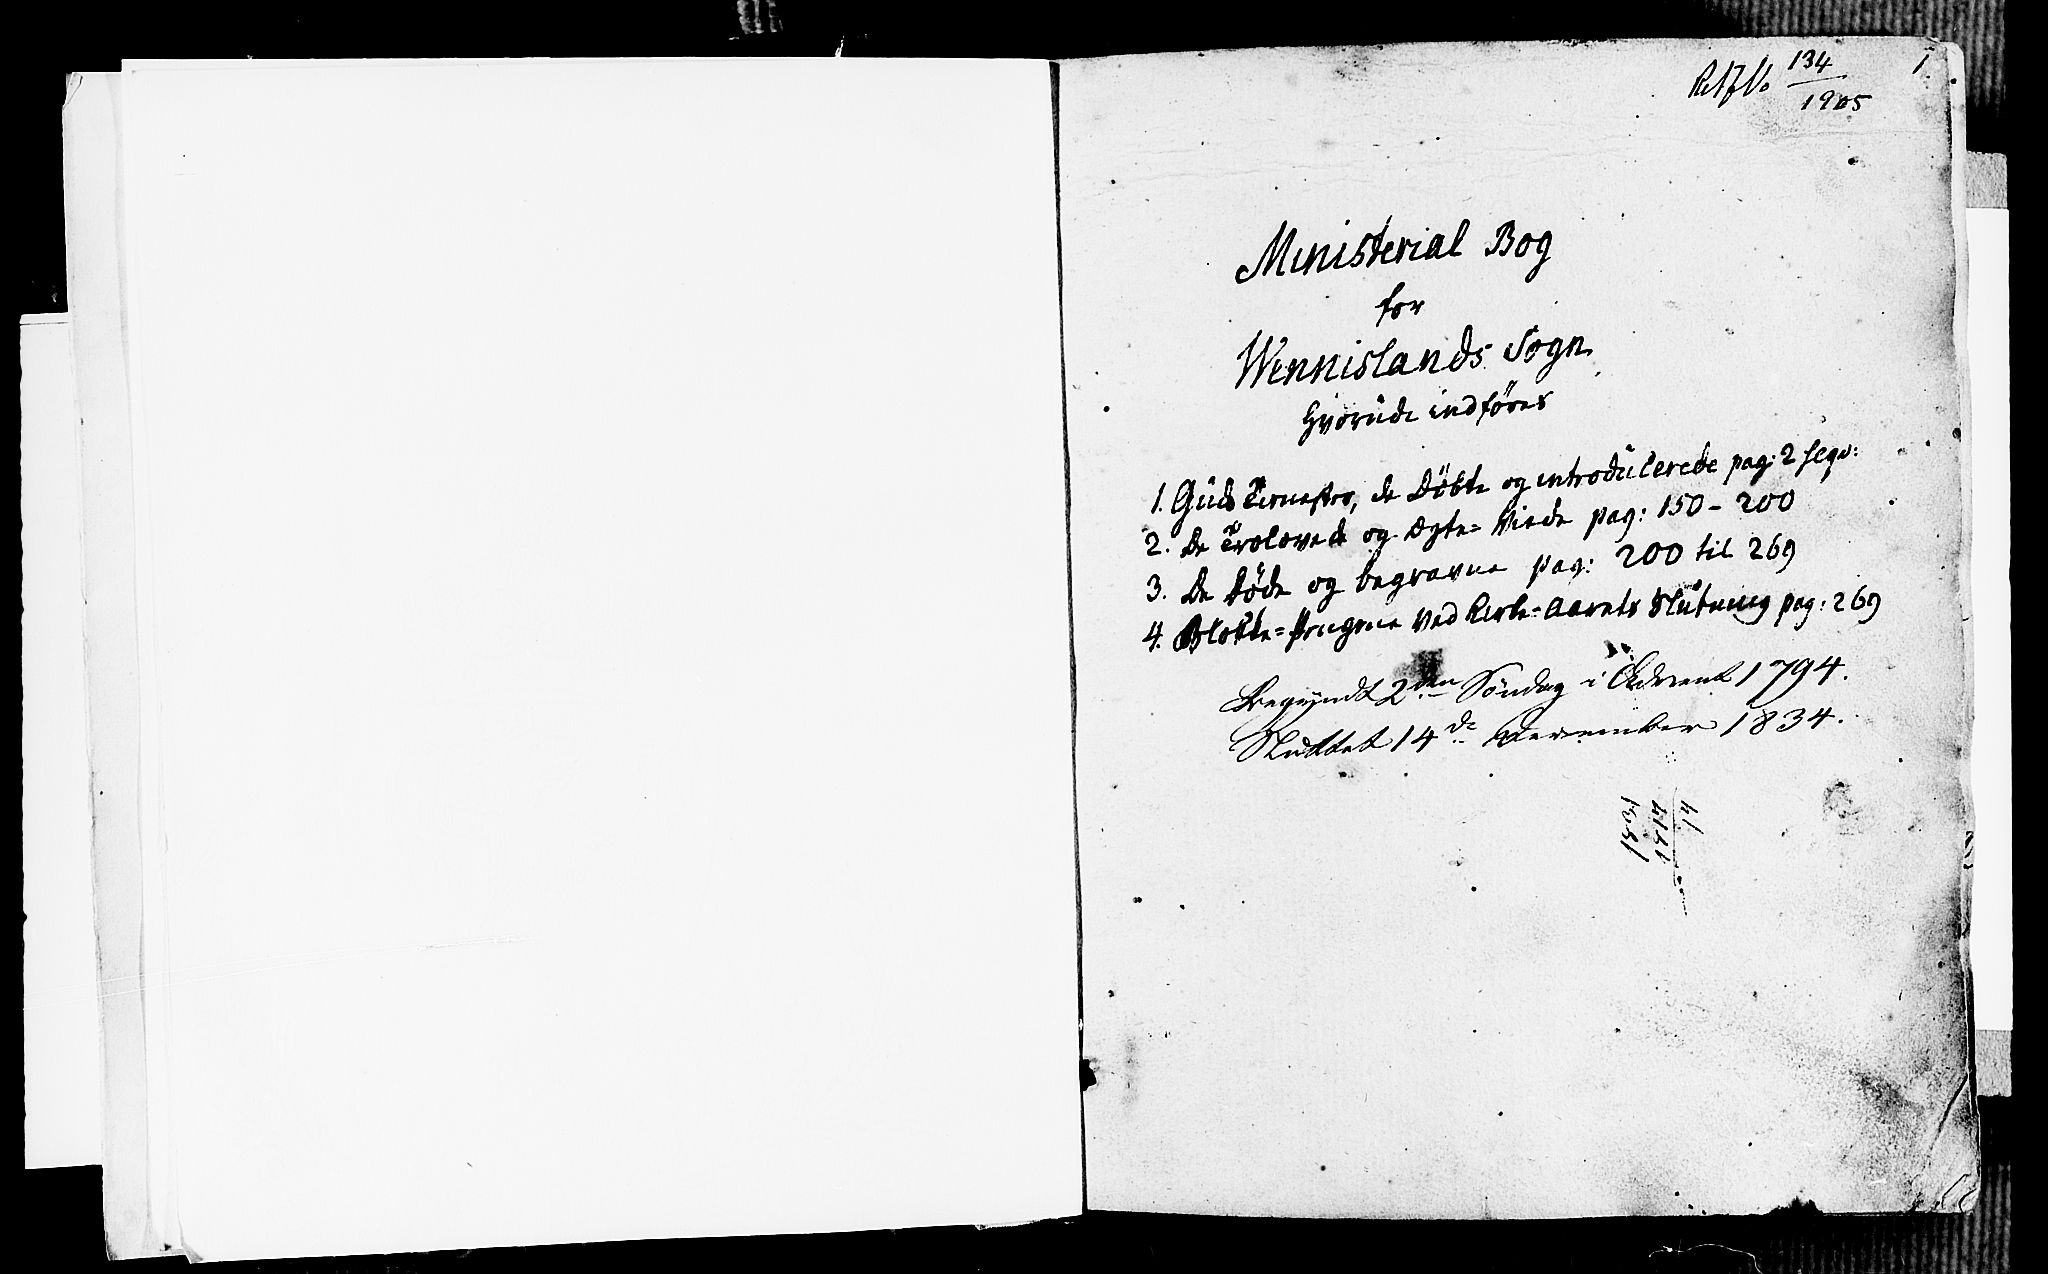 134
1905
1.
Ministerial Bog
for
Wennislands Sogn
hvorudi indföres
1. Guds Tieneste, de Döbte og introducerede pag: 2 seqv:
2. De Trolovede og Ægte=Viede pag: 150 - 200
3. De Döde og begravne pag: 200 til 269
4. Blokke=Pengene ved Kirke=Aarets Slutning pag: 269
Begyndt 2den Söndag i Advent 1794.
Sluttet 14de December 1834.
41